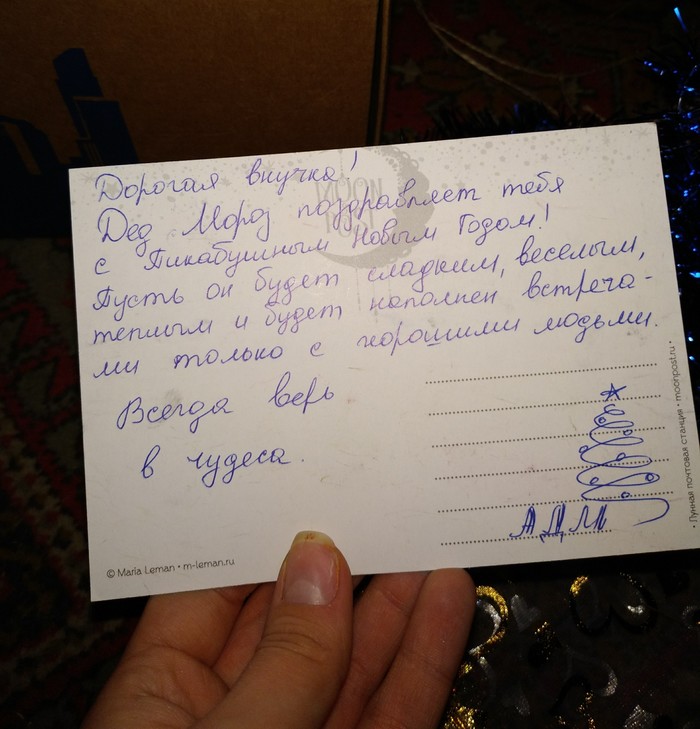 Дорогая внучка!
Дед Мороз поздравляет тебя
с Пикабушным Новым Годом!
Пусть он будет сладким, веселым,
теплым и будет наполнен встреча-
ми только с хорошими людьми.
Всегда верь
в чудеса.
АДМ
© Maria Leman • m-leman.ru
• Лунная почтовая станция • moonpost.ru •
MOON